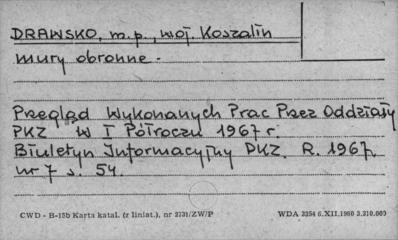 DRAWSKO, m.p., woj. Koszalin
mury obronne.
Przegląd Wykonanych Prac Przez Oddziały
PKZ w I Półroczu 1967 r.
Biuletyn Informacyjny PKZ. R. 1967,
nr 7 s. 54.
CWD - B-15b Karta katal. (z liniat.), nr 2731/ZW/P
WDA 3254 6.XII.1960 3.210.000